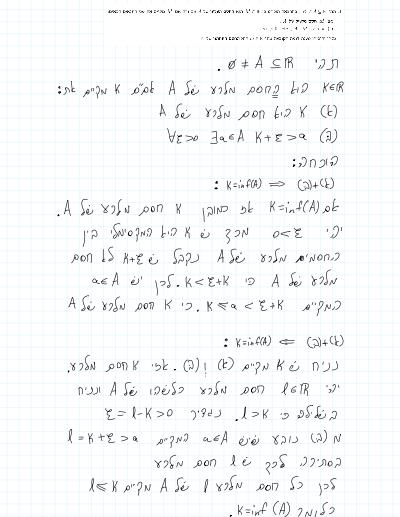 תהי ∅ ≠ A ⊆ ℝ .
K∈ℝ הוא החסם מלרע של A אם״ם K מקיים את:
(א) K הוא חסם מלרע של A
(ב) ∀ε>0 ∃a∈A K+ε>a
הוכחה:
K=inf(A) ⇒ (א)+(ב) :
אם K=inf(A) אז כמובן K חסם מלרע של A.
יהי ε>0 מכך ש K הוא המקסימלי בין
החסמים מלרע של A נקבל ש K+ε לא חסם
מלרע של A כי K<ε+K. לכן יש a∈A
המקיים K≤a<ε+K. כי K חסם מלרע של A
K=inf(A) ⇐ (א)+(ב) :
נניח ש K מקיים (א) ו(ב). אזי K חסם מלרע.
יהי l∈ℝ חסם מלרע כלשהו של A ונניח
בשלילה כי l>K. נגדיר ε=l-K>0
מ (ב) נובע שיש a∈A המקיים l=K+ε>a
בסתירה לכך ש l חסם מלרע
לכן כל חסם מלרע l של A מקיים l≤K
כלומר K=inf(A).